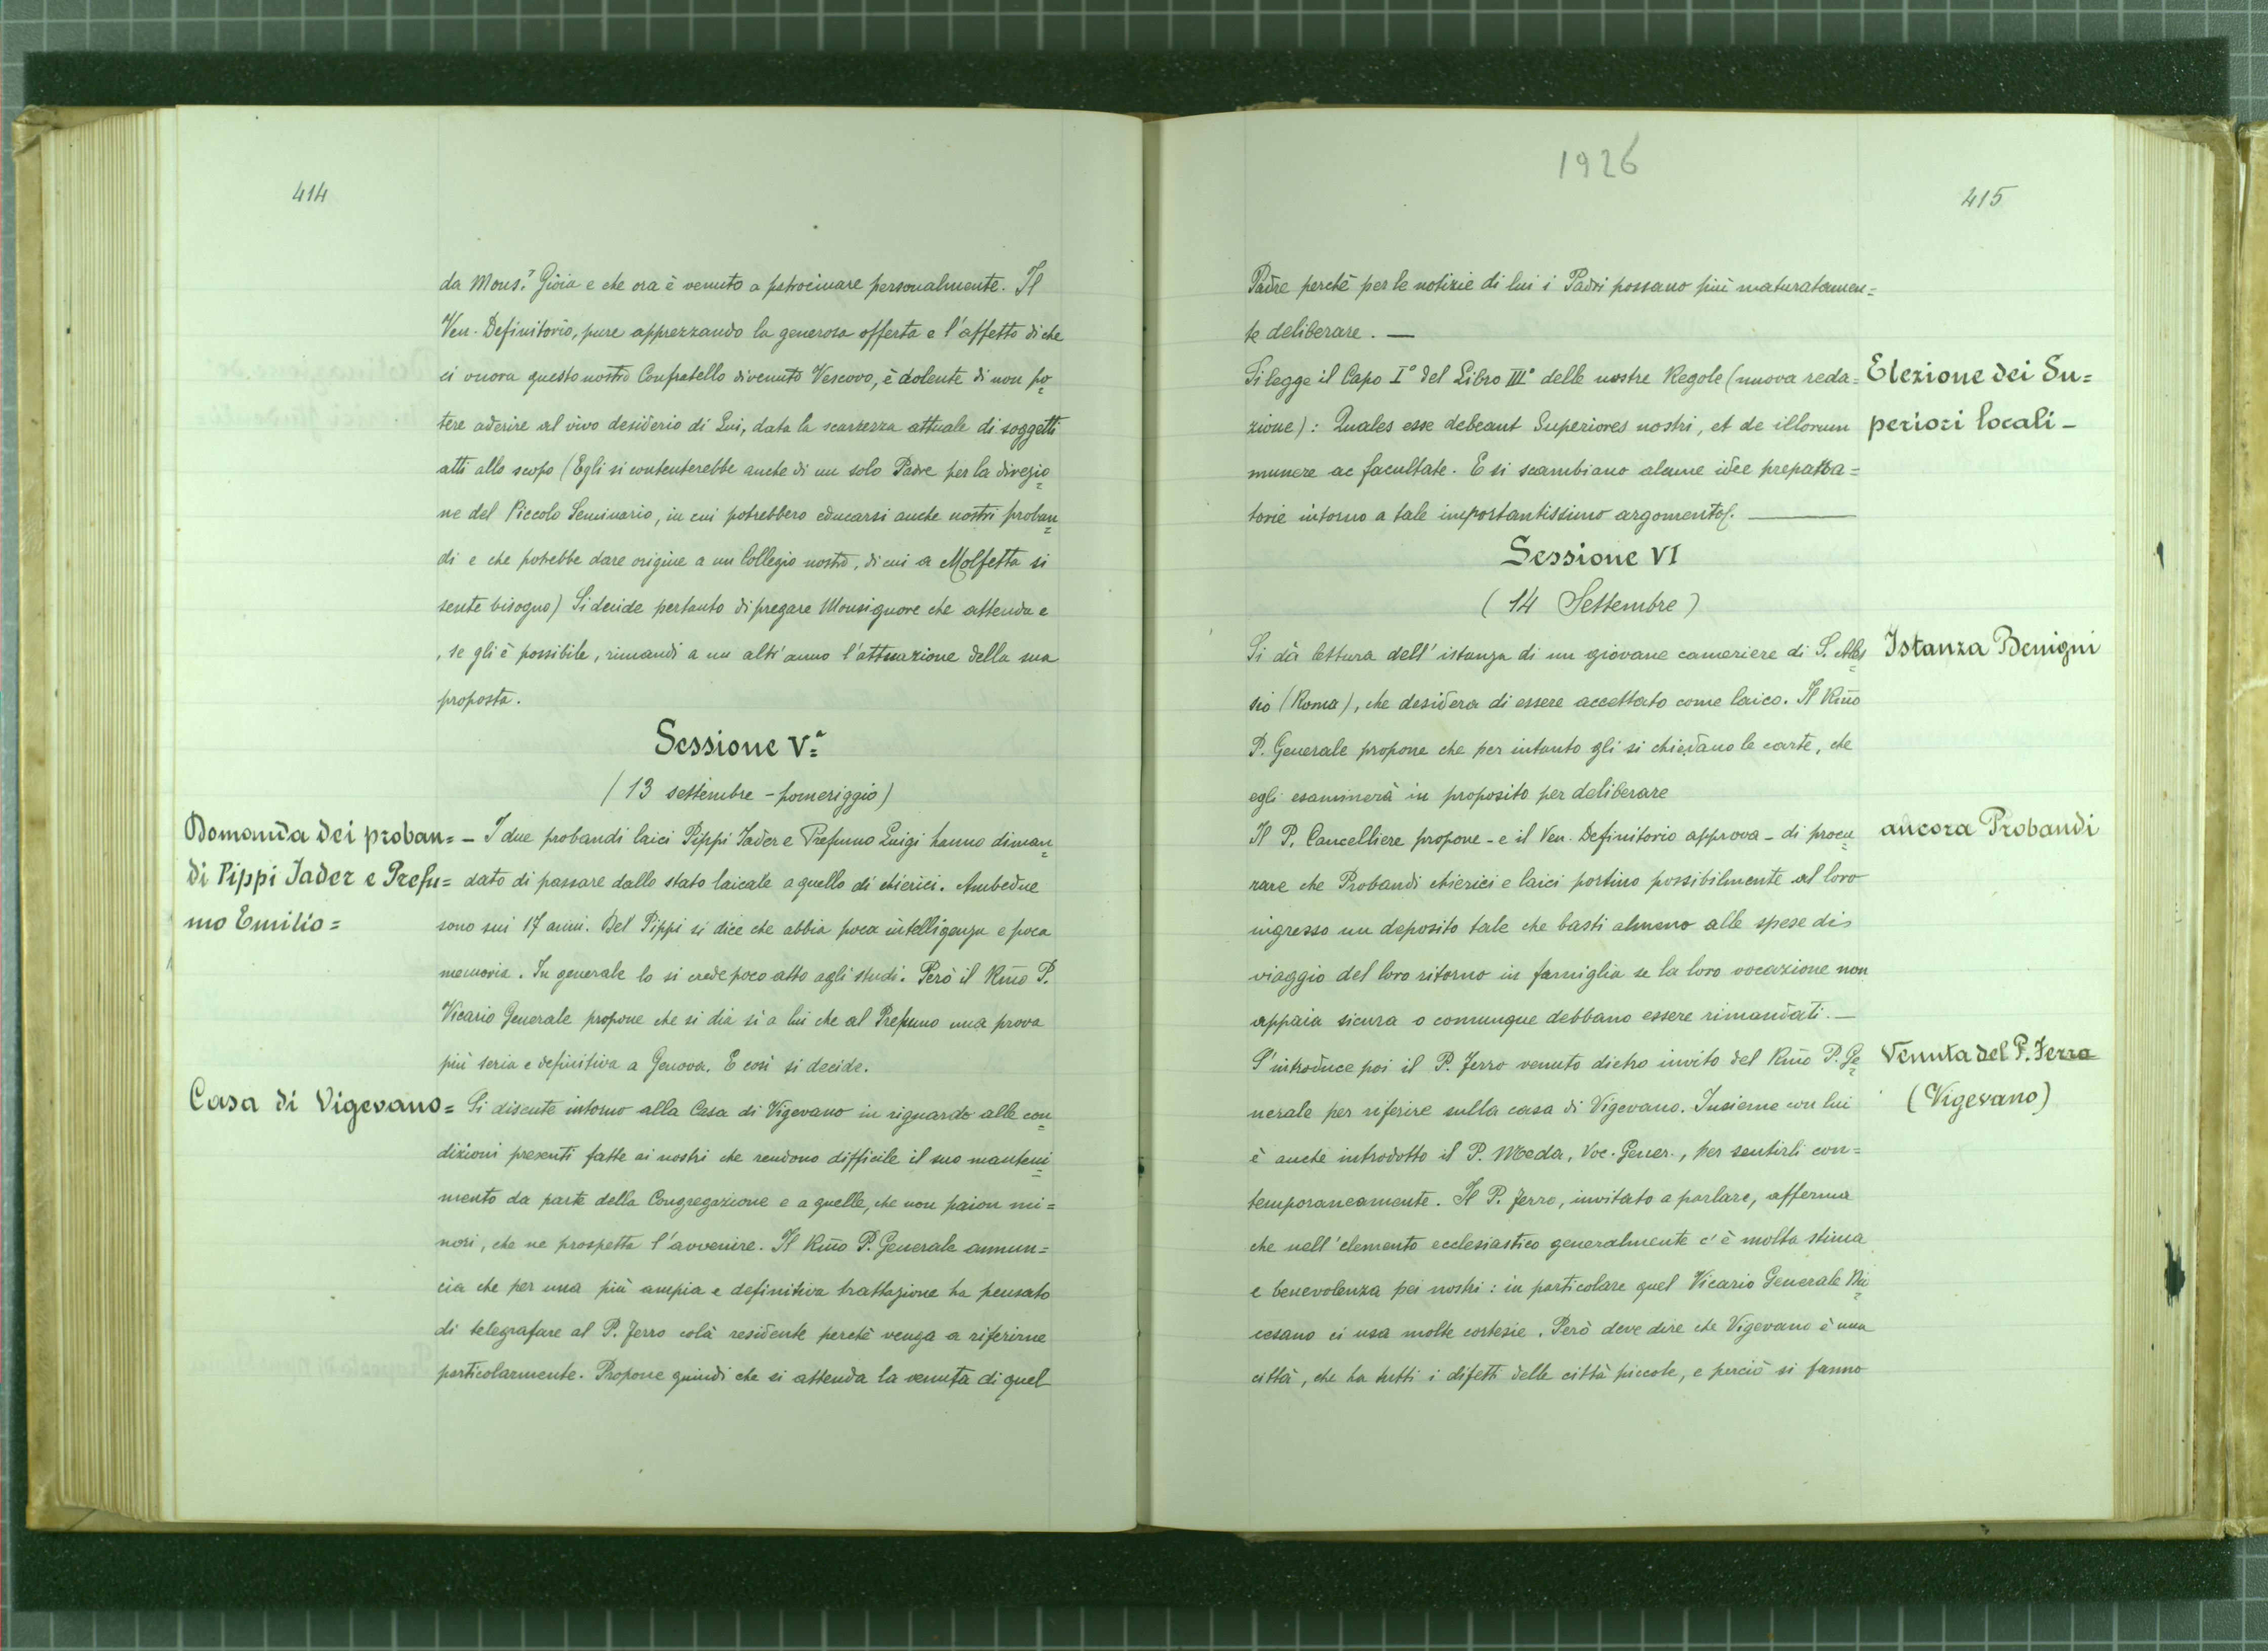 414
da Mons.r Gioia e che ora è venuto a patrocinare personalmente. Il
Ven. Definitorio, pure apprezzando la generosa offerta e l'affetto di che
ci onora questo nostro Confratello divenuto Vescovo, è dolente di non po=
tere aderire al vivo desiderio di Lui, data la scarsezza attuale di soggetti
atti allo scopo (Egli si contenterebbe anche di un solo Padre per la direzio=
ne del Piccolo Seminario, in cui potrebbero educarsi anche nostri proban=
di e che potrebbe dare origine a un Collegio nostro, di cui a Molfetta si
sente bisogno) Si decide pertanto di pregare Monsignore che attenda e
, se gli è possibile, rimandi a un altr'anno l'attuazione della sua
proposta.
Sessione V.a
(13 settembre - pomeriggio)
Domanda dei proban=
di Pippi Jader e Prefu=
mo Emilio=
- I due probandi laici Pippi Jader e Prefumo Luigi hanno diman=
dato di passare dallo stato laicale a quello di chierici. Ambedue
sono sui 17 anni. Del Pippi si dice che abbia poca intelligenza e poca
memoria. In generale lo si crede poco atto agli studi. Però il Rmo P.
Vicario Generale propone che si dia sì a lui che al Prefumo una prova
più seria e definitiva a Genova. E così si decide.
Casa di Vigevano=
Si discute intorno alla Casa di Vigevano in riguardo alle con=
dizioni presenti fatte ai nostri che rendono difficile il suo manteni=
mento da parte della Congregazione e a quelle, che non paion mi=
nori, che ne prospetta l'avvenire. Il Rmo P. Generale annun=
cia che per una più ampia e definitiva trattazione ha pensato
di telegrafare al P. Ferro colà residente perchè venga a riferirne
particolarmente. Propone quindi che si attenda la venuta di quel
1926
415
Padre perchè per le notizie di lui i Padri possano più maturatamen=
te deliberare. —
Elezione dei Su=
periori locali -
Si legge il Capo I° del Libro III° delle nostre Regole (nuova reda=
zione): Quales esse debeant Superiores nostri, et de illorum
munere ac facultate. E si scambiano alcune idee prepara=
torie intorno a tale importantissimo argomento. —
Sessione VI
(14 Settembre)
Istanza Benigni
Si dà lettura dell'istanza di un giovane cameriere di S. Ales=
sio (Roma), che desidera di essere accettato come laico. Il Rmo
P. Generale propone che per intanto gli si chiedano le carte, che
egli esaminerà in proposito per deliberare
ancora Probandi
Il P. Cancelliere propone - e il Ven. Definitorio approva - di procu=
rare che Probandi chierici e laici portino possibilmente al loro
ingresso un deposito tale che basti almeno alle spese di
viaggio del loro ritorno in famiglia se la loro vocazione non
appaia sicura o comunque debbano essere rimandati. —
Venuta del P. Ferro
(Vigevano)
S'introduce poi il P. Ferro venuto dietro invito del Rmo P. Ge=
nerale per riferire sulla casa di Vigevano. Insieme con lui
è anche introdotto il P. Meda, Voc. Gener., per sentirli con=
temporaneamente. Il P. Ferro, invitato a parlare, afferma
che nell'elemento ecclesiastico generalmente c'è molta stima
e benevolenza pei nostri: in particolare quel Vicario Generale Dio=
cesano ci usa molte cortesie. Però deve dire che Vigevano è una
città, che ha tutti i difetti delle città piccole, e perciò si fanno